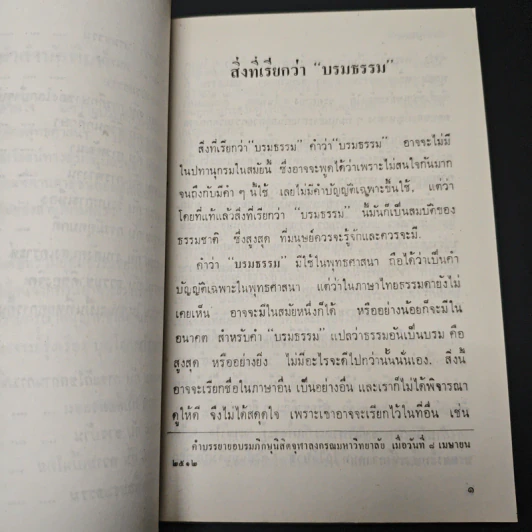 สิ่งที่เรียกว่า “บรมธรรม”
สิ่งที่เรียกว่า “บรมธรรม” คำว่า “บรมธรรม” อาจจะไม่มี
ในปทานุกรมในสมัยนี้ ซึ่งอาจจะพูดได้ว่าเพราะไม่สนใจกันมาก
จนถึงกับมีคำ ๆ นี้ใช้ เลยไม่มีคำบัญญัติเฉพาะขึ้นใช้. แต่ว่า
โดยที่แท้แล้วสิ่งที่เรียกว่า “บรมธรรม” นี้มันก็เป็นสมบัติของ
ธรรมชาติ ซึ่งสูงสุด ที่มนุษย์ควรจะรู้จักและควรจะมี.
คำว่า “บรมธรรม” มีใช้ในพุทธศาสนา ถือได้ว่าเป็นคำ
บัญญัติเฉพาะในพุทธศาสนา แต่ว่าในภาษาไทยธรรมดายังไม่
เคยเห็น อาจจะมีในสมัยหนึ่งก็ได้ หรืออย่างน้อยก็จะมีใน
อนาคต สำหรับคำ “บรมธรรม” แปลว่าธรรมอันเป็นบรม คือ
สูงสุด หรืออย่างยิ่ง ไม่มีอะไรจะดีไปกว่านั้นนั่นเอง. สิ่งนี้
อาจจะเรียกชื่อในภาษาอื่น เป็นอย่างอื่น และเราก็ไม่ได้พิจารณา
ดูให้ดี จึงไม่ได้สดุดใจ เพราะเขาอาจจะเรียกไว้ในที่อื่น เช่น
คำบรรยายอบรมภิกษุนิสิตจุฬาลงกรณมหาวิทยาลัย เมื่อวันที่ ๘ เมษายน
๒๕๑๒
๑